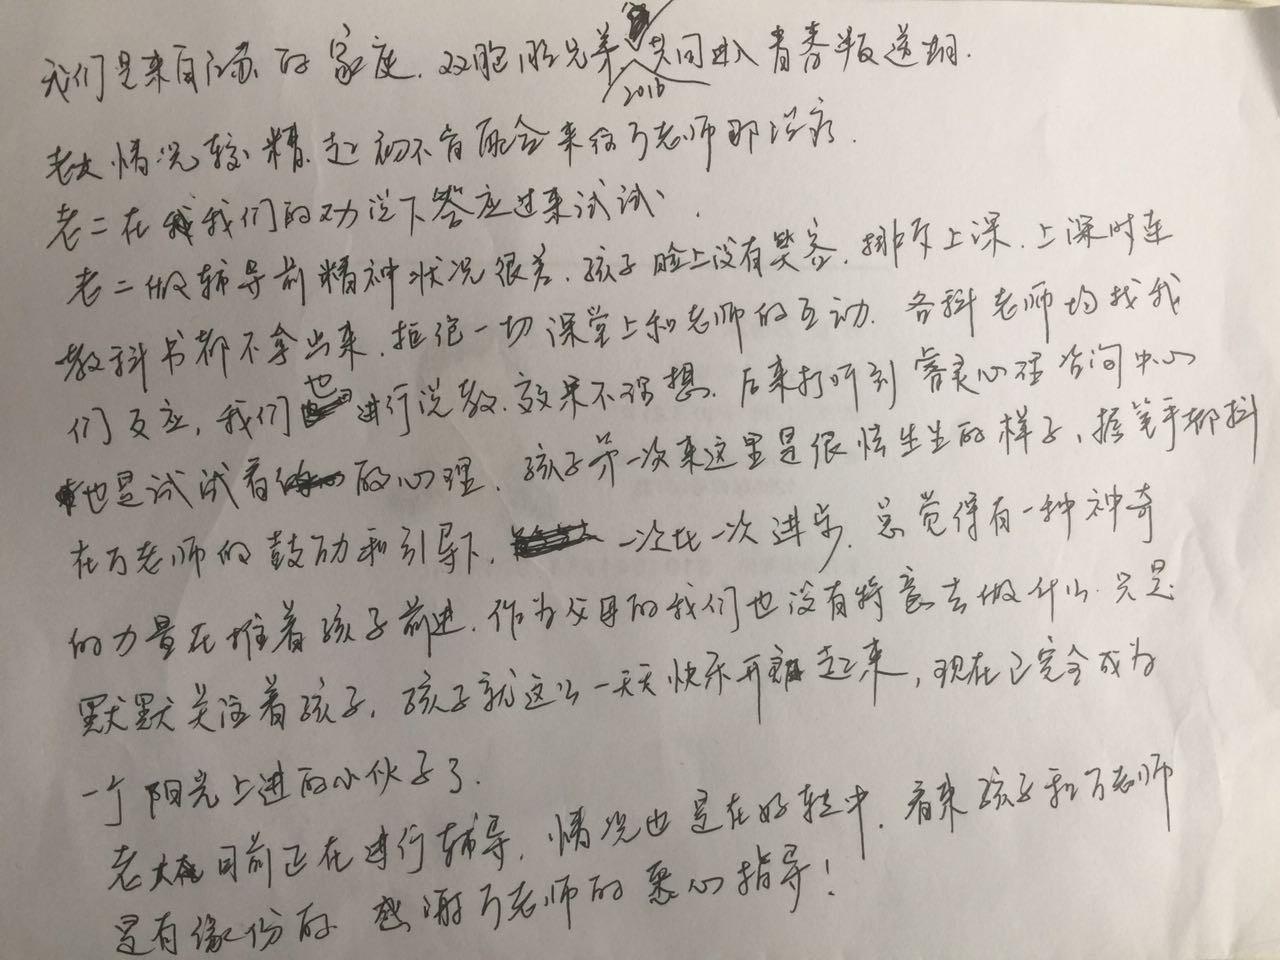 我们是来自江苏的家庭，双胞胎兄弟2016共同进入青春叛逆期.
老大情况较糟，起初不肯配合来徐万老师那治疗.
老二在我们的劝说下答应过来试试.
老二做辅导前精神状况很差，孩子脸上没有笑容，排斥上课，上课时连
教科书都不拿出来，拒绝一切课堂上和老师的互动.各科老师均找我
们反应，我们也进行说教，效果不理想，后来打听到睿灵心理咨询中心
也是试试看的心理，孩子第一次来这里是很怯生生的样子，握笔手都抖
在万老师的鼓励和引导下，一次比一次进步，总觉得有一种神奇
的力量在推着孩子前进，作为父母的我们也没有特意去做什么，只是
默默关注着孩子，孩子就这么一天天快乐开朗起来，现在已完全成为
一个阳光上进的小伙子了.
老大目前正在进行辅导，情况也是在好转中，看来孩子和万老师
是有缘份的，感谢万老师的悉心指导！